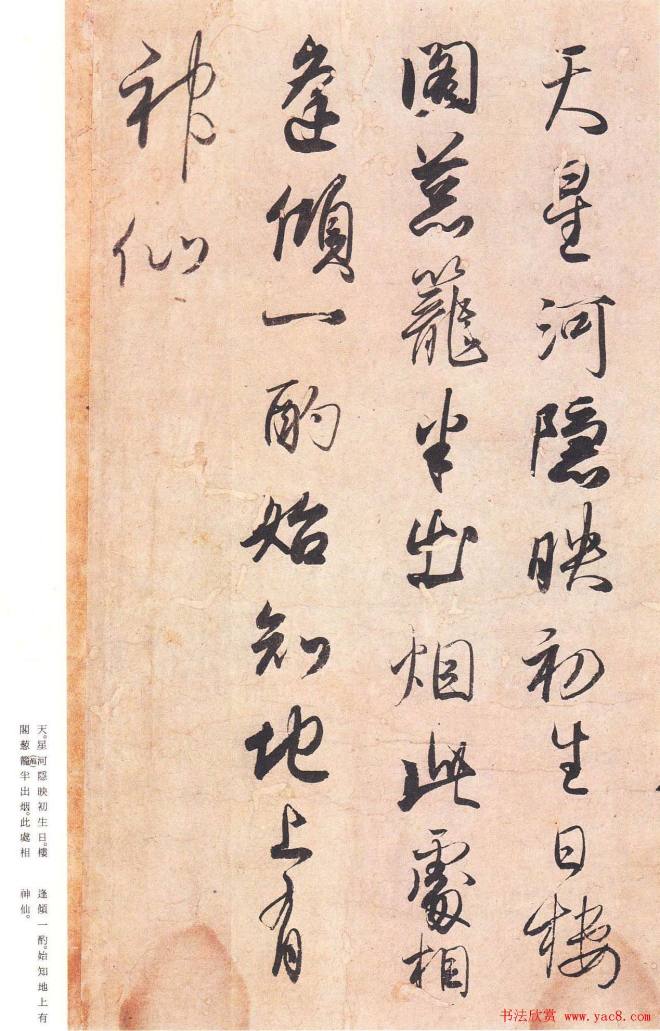 天星河隱映初生日樓
閣葱籠半出烟此處相
逢傾一酌始知地上有
神仙
天。星河隱映初生日。樓
閣葱籠(蘢)半出烟。此處相
逢傾一酌。始知地上有
神仙。
书法欣赏 www.yac8.com